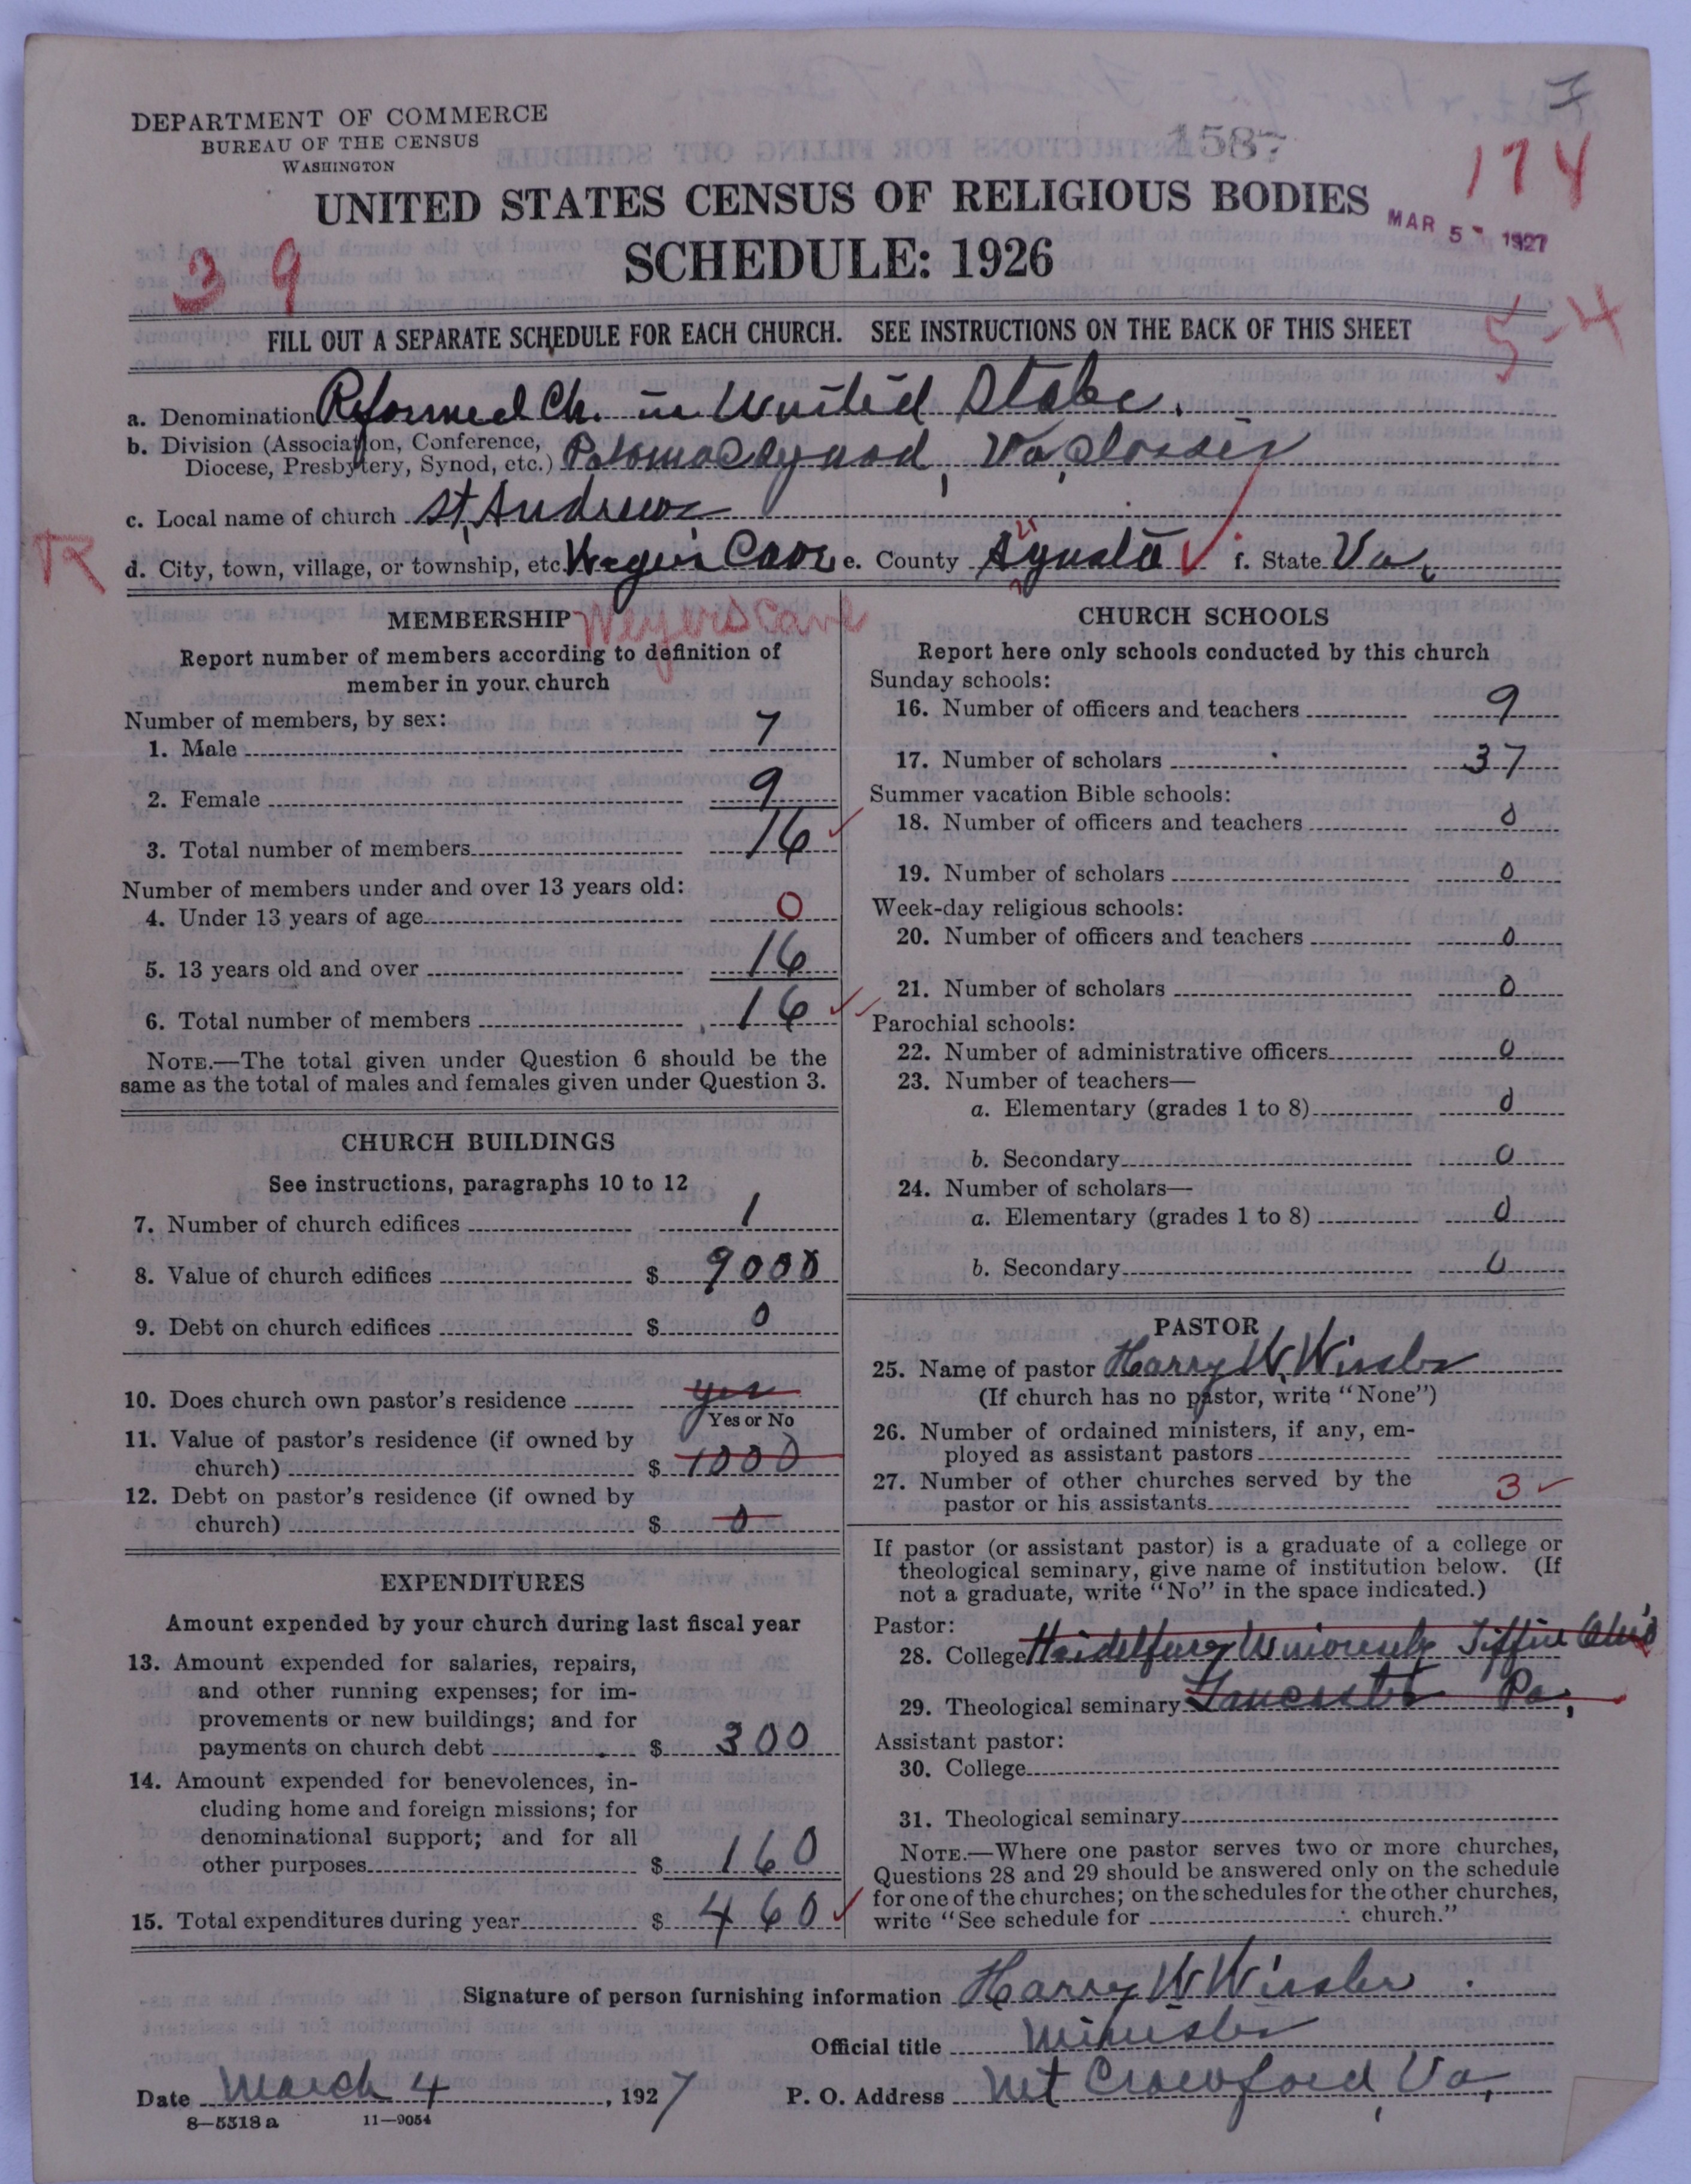 DEPARTMENT OF COMMERCE
BUREAU OF THE CENSUS
WASHINGTON
1587
174
UNITED STATES CENSUS OF RELIGIOUS BODIES
MAR 5 - 1927
39
SCHEDULE: 1926
5-4
FILL OUT A SEPARATE SCHEDULE FOR EACH CHURCH. SEE INSTRUCTIONS ON THE BACK OF THIS SHEET
a. Denomination Reformed Ch. in United State.
b. Division (Association, Conference,
Diocese, Presbytery, Synod, etc.) Potomac Synod, Va, Classis
c. Local name of church St, Andrews
R
d. City, town, village, or township, etc. Cave e. County Agusta f. State Va,
Weyers Cave
MEMBERSHIP
Report number of members according to definition of
member in your church
Number of members, by sex:
1. Male 7
2. Female 9
3. Total number of members 16
Number of members under and over 13 years old:
4. Under 13 years of age 0
5. 13 years old and over 16
6. Total number of members 16
NOTE.—The total given under Question 6 should be the
same as the total of males and females given under Question 3.
CHURCH BUILDINGS
See instructions, paragraphs 10 to 12
7. Number of church edifices 1
8. Value of church edifices $ 9000
9. Debt on church edifices $ 0
10. Does church own pastor's residence yes
Yes or No
11. Value of pastor's residence (if owned by
church) $ 1000
12. Debt on pastor's residence (if owned by
church) $ 0
EXPENDITURES
Amount expended by your church during last fiscal year
13. Amount expended for salaries, repairs,
and other running expenses; for im-
provements or new buildings; and for
payments on church debt $ 300
14. Amount expended for benevolences, in-
cluding home and foreign missions; for
denominational support; and for all
other purposes $ 160
15. Total expenditures during year $ 460
CHURCH SCHOOLS
Report here only schools conducted by this church
Sunday schools:
16. Number of officers and teachers 9
17. Number of scholars 37
Summer vacation Bible schools:
18. Number of officers and teachers 0
19. Number of scholars 0
Week-day religious schools:
20. Number of officers and teachers 0
21. Number of scholars 0
Parochial schools:
22. Number of administrative officers 0
23. Number of teachers—
a. Elementary (grades 1 to 8) 0
b. Secondary 0
24. Number of scholars—
a. Elementary (grades 1 to 8) 0
b. Secondary 0
PASTOR
25. Name of pastor Harry W. Wissler
(If church has no pastor, write "None")
26. Number of ordained ministers, if any, em-
ployed as assistant pastors
27. Number of other churches served by the
pastor or his assistants 3
If pastor (or assistant pastor) is a graduate of a college or
theological seminary, give name of institution below. (If
not a graduate, write "No" in the space indicated.)
Pastor:
28. College Heidelburg University Tiffin Ohio
29. Theological seminary Lancaster Pa,
Assistant pastor:
30. College
31. Theological seminary
NOTE.—Where one pastor serves two or more churches,
Questions 28 and 29 should be answered only on the schedule
for one of the churches; on the schedules for the other churches,
write "See schedule for church."
Signature of person furnishing information Harry W Wissler
Official title Minister
Date March 4, 1927 P. O. Address Mt Crawford, Va,
8—5518 a 11—9054